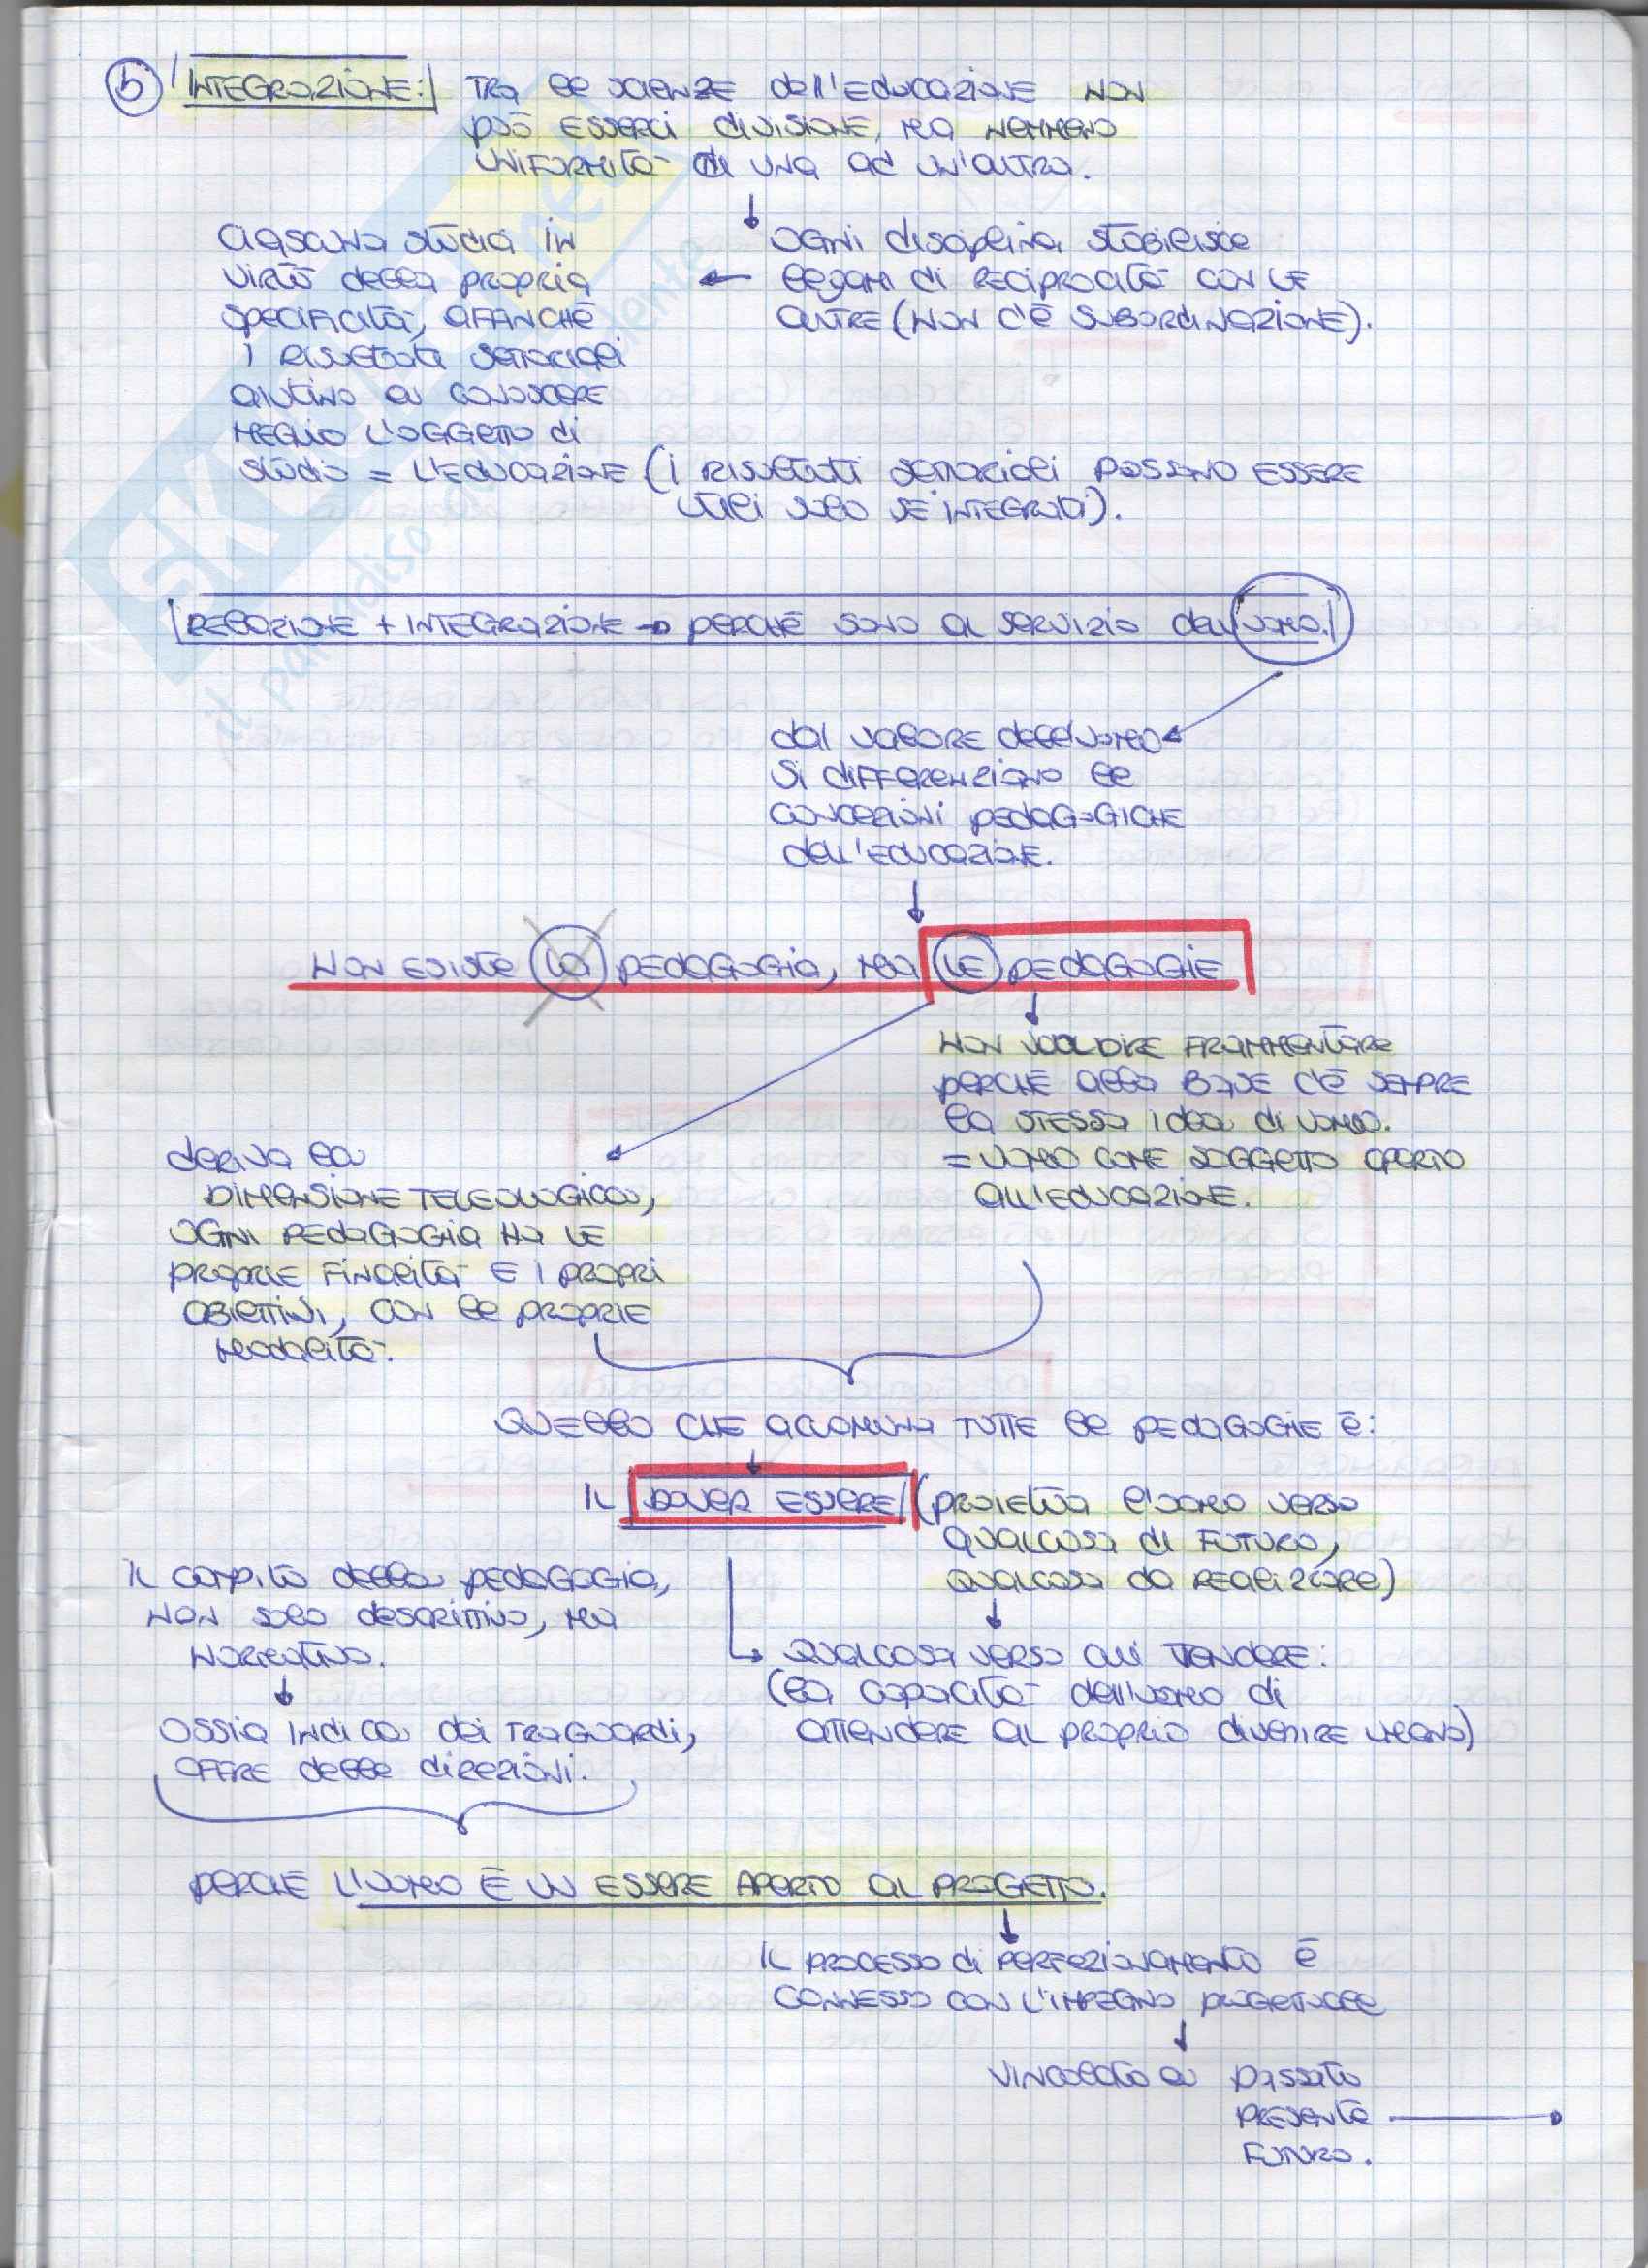 b) INTEGRAZIONE: TRA le SCIENZE dell'EDUCAZIONE NON
può ESSERCI divisione, MA NEMMENO
UNIFORMITÀ di UNA ad UN'ALTRA.
↓
OGNI disciplina stabilisce
legami di RECIPROCITÀ CON LE
ALTRE (NON C'È SUBORDINAZIONE).
←
CIASCUNA studia IN
VIRTÙ della propria
SPECIFICITÀ, AFFINCHÉ
I RISULTATI SETTORIALI
AIUTINO A CONOSCERE
MEGLIO L'OGGETTO di
studio = L'EDUCAZIONE (I RISULTATI SETTORIALI POSSONO ESSERE
UTILI SOLO SE INTEGRATI).
RELAZIONE + INTEGRAZIONE → PERCHÉ SONO AL SERVIZIO dell'UOMO.
dal VALORE dell'UOMO
SI DIFFERENZIANO le
CONCEZIONI PEDAGOGICHE
dell'EDUCAZIONE.
↓
NON ESISTE LA PEDAGOGIA, MA LE PEDAGOGIE
↓
NON VUOL DIRE FRAMMENTARE
PERCHÉ alla BASE C'È SEMPRE
la STESSA idea di UOMO.
= UOMO COME SOGGETTO APERTO
ALL'EDUCAZIONE.
deriva la
DIMENSIONE TELEOLOGICA,
OGNI PEDAGOGIA HA LE
PROPRIE FINALITÀ E I PROPRI
OBIETTIVI, CON le PROPRIE
MODALITÀ.
QUELLO CHE ACCOMUNA TUTTE le PEDAGOGIE È:
↓
IL DOVER ESSERE (PROIETTA l'UOMO VERSO
QUALCOSA di FUTURO,
QUALCOSA DA REALIZZARE)
↓
QUALCOSA VERSO CUI TENDERE:
(la capacità dell'UOMO di
ATTENDERE AL PROPRIO divenire UMANO)
IL COMPITO della PEDAGOGIA,
NON solo descrittivo, MA
NORMATIVO.
↓
OSSIA INDICA dei TRAGUARDI,
OFFRE delle direzioni.
PERCHÉ L'UOMO È UN ESSERE APERTO AL PROGETTO.
↓
IL PROCESSO di PERFEZIONAMENTO È
CONNESSO CON L'IMPEGNO PROGETTUALE
↓
VINCOLATO A PASSATO
PRESENTE →
FUTURO.